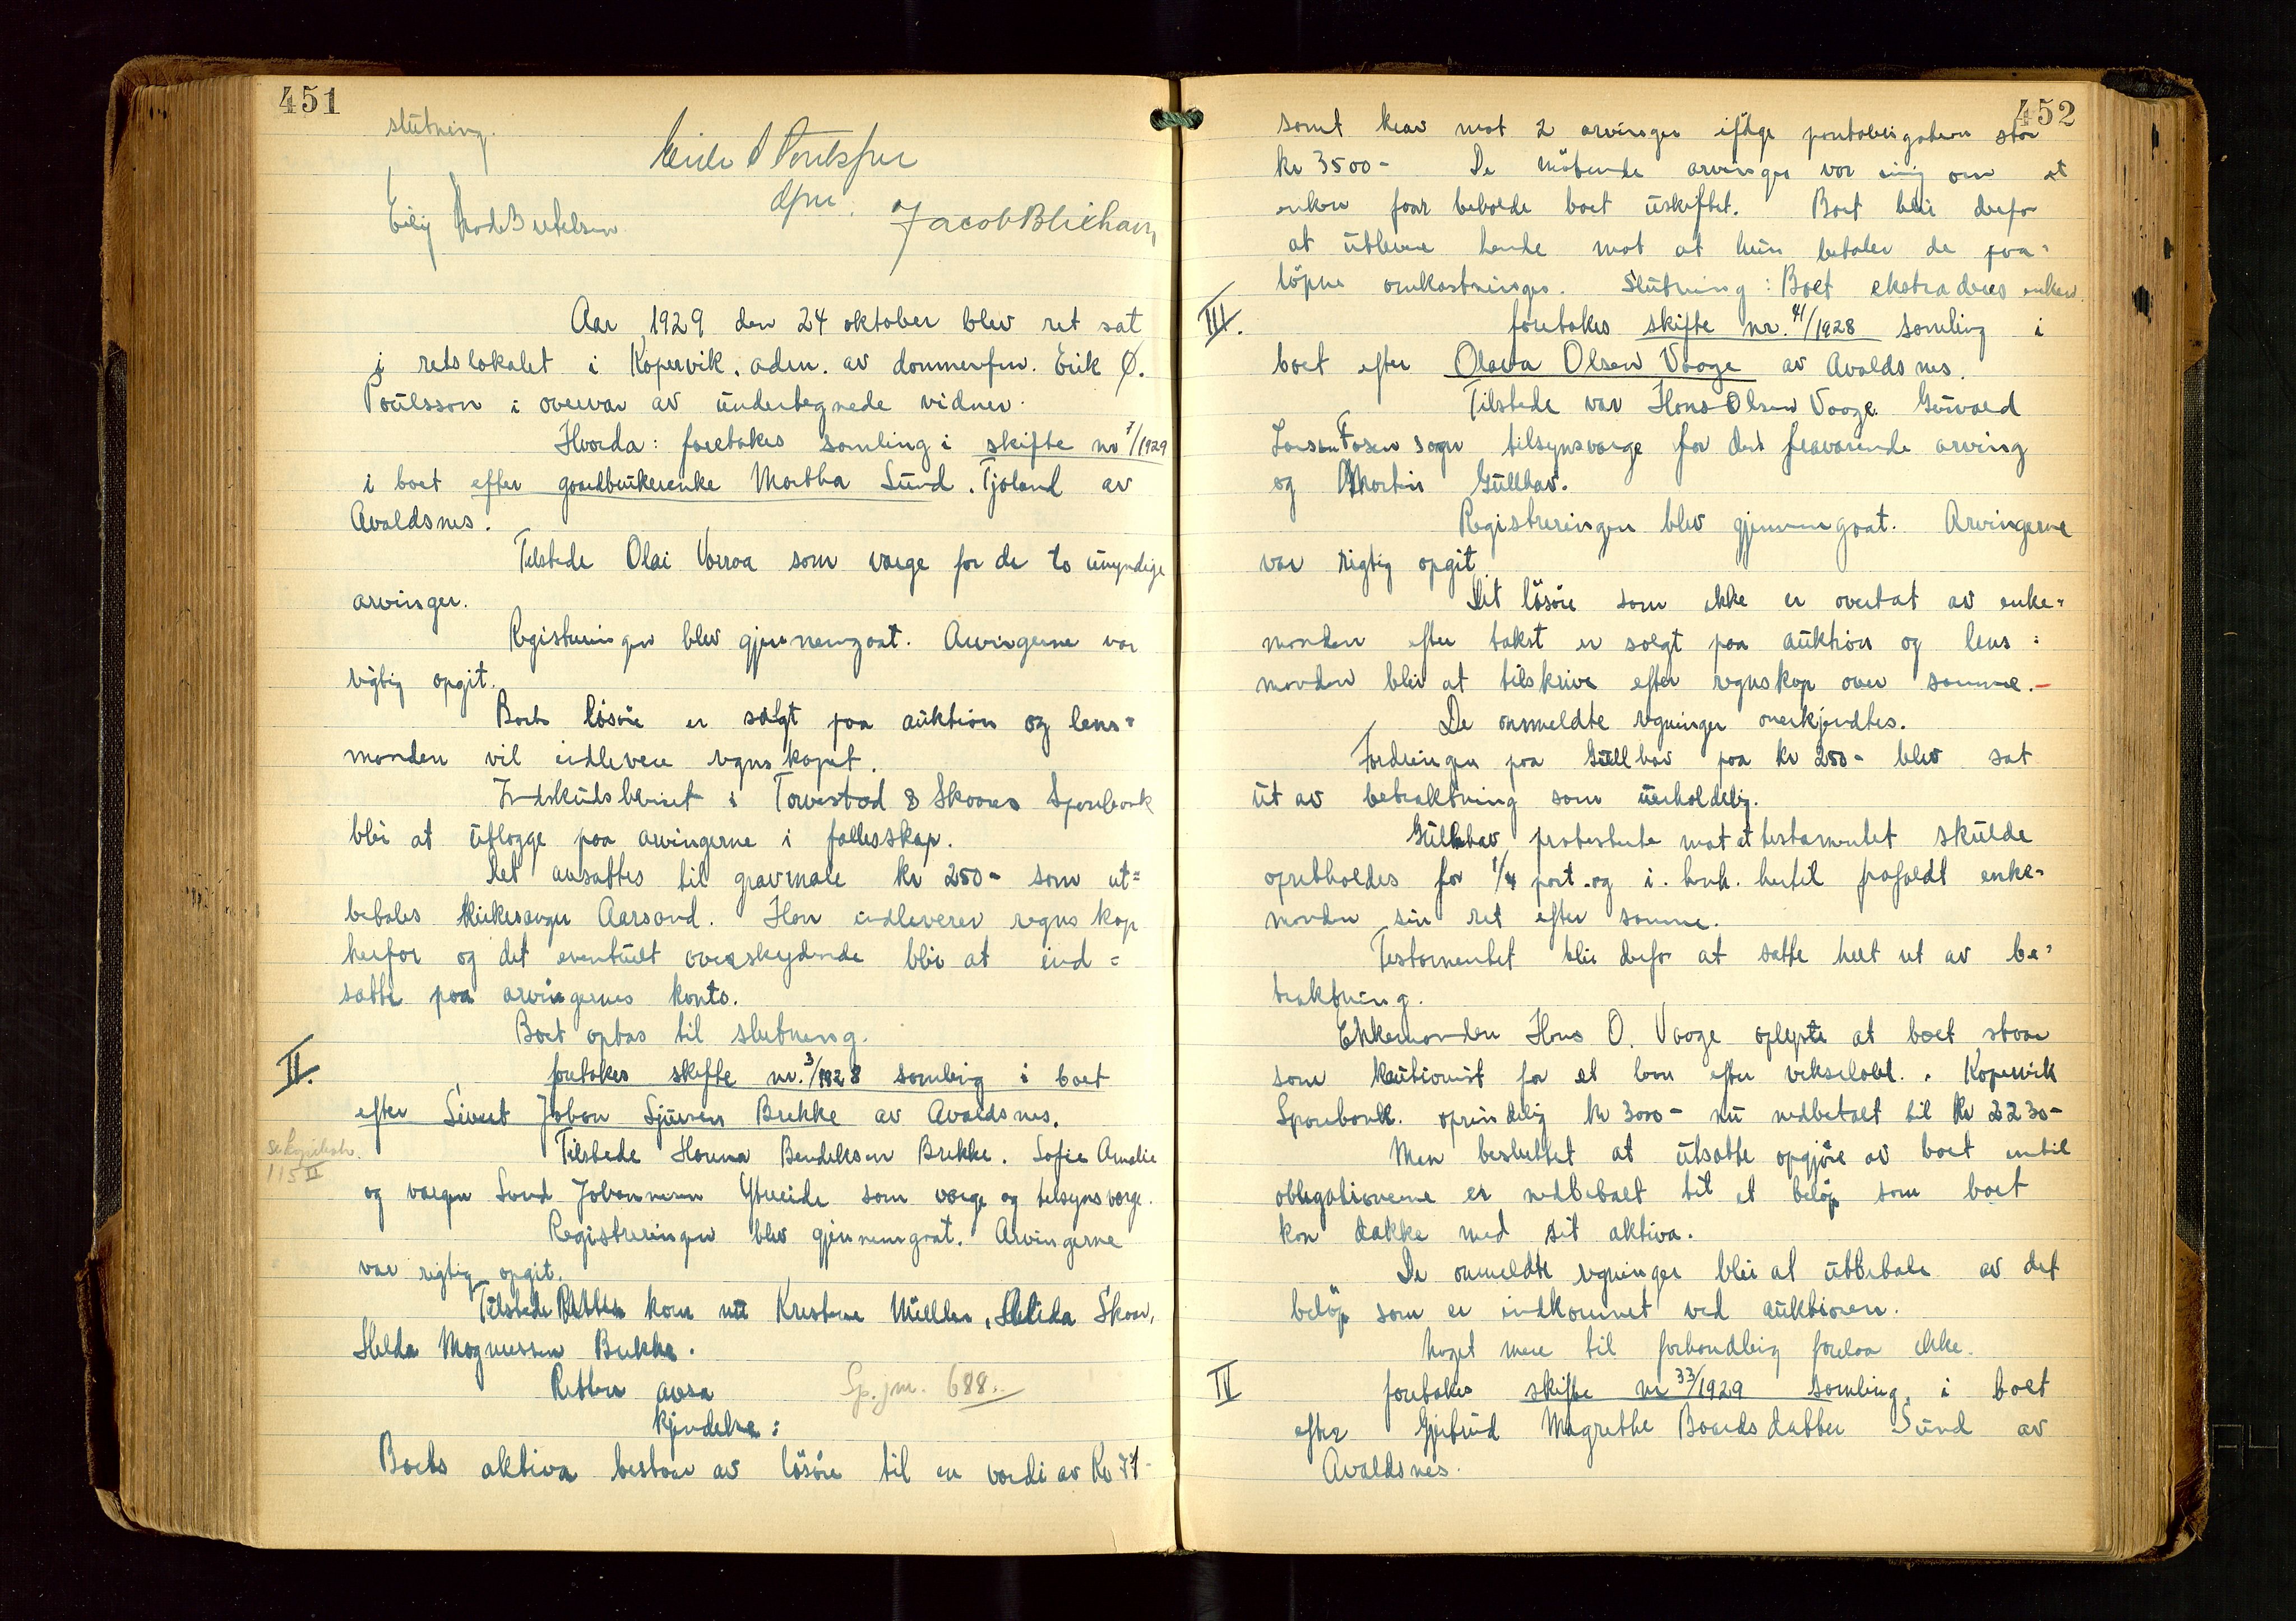 451
slutning.
Jacob Blikhavn
Aar 1929 den 24 oktober blev ret sat
i retslokalet i Kopervik, adm. av dommerfm. Erik Ø.
Poulsson i overvær av undertegnede vidner.
Hvorda: foretokes samling i skifte nr 7/1929
i boet efter gaardbrukerenke Martha Sund, Tjøland av
Avaldsnes.
Tilstede Olai Vorraa som værge for de to umyndige
arvinger.
Registreringen blev gjennemgaat. Arvingerne var
rigtig opgit.
Boets løsøre er solgt paa auktion og lens=
manden vil indlevere regnskapet.
Indskudsbeviset i Torvestad & Skaares Sparebank
blir at utlægge paa arvingerne i fællesskap.
Det ansattes til gravmæle kr 250- som ut=
betales kirkesanger Aarsand. Han indleverer regnskap
herfor og det eventuelt overskydende blir at ind=
sætte paa arvingernes konto.
Boet optas til slutning.
II. foretokes skifte nr. 3/1928 samling i boet
efter Sivert Johan Sjursen Brekke av Avaldsnes.
115 II
Tilstede Hanna Bendiksen Brekke, Sofie Amalie
og værgen Johannesen som værge og tilsynsværge.
Registreringen blev gjennemgaat. Arvingerne
var rigtig opgit.
Tilstede kom nu Kristine Müller, Skaar,
Hilda Magnussen Brekke.
Retten avsa Sp. jnr. 688.
Kjendelse:
Boets aktiva bestaar av løsøre til en værdi av Kr 77-
452
samt krav mot 2 arvinger ifølge panteobligation stor
kr 3500- De møtende arvinger var enig om at
enken faar beholde boet uskiftet. Boet blir derfor
at utlevere hende mot at hun betaler de paa=
løpne omkostninger. Slutning: Boet ekstraderes enken.
III. foretokes skifte nr. 41/1928 samling i
boet efter Olava Olsen Vaage av Avaldsnes.
Tilstede var Hans Olsen Vaage
Larsen Fosen som tilsynsværge for den fraværende arving
og Martin Gullhav.
Registreringen blev gjennemgaat. Arvingerne
var rigtig opgit.
Det løsøre som ikke er overtat av enke=
manden efter takst er solgt paa auktion og lens=
manden blir at tilskrive efter regnskap over samme.
De anmeldte regninger anerkjendtes.
Fordringen paa Gullhav paa kr 250- blev sat
ut av betraktning som uerholdelig.
Gullhav protesterte mot at testamentet skulde
opretholdes for 1/4 part og i henh. hertil frafaldt enke=
manden sin ret efter samme.
Testamentet blir derfor at sætte helt ut av be=
traktning.
Enkemanden Hans O. Vaage oplyste at boet staar
som kautionist for et laan efter vekselobl. i Kopervik
Sparebank oprindelig kr 3000- nu nedbetalt til kr 2230-
Man besluttet at utsætte opgjøre av boet intil
obligationerne er nedbetalt til et beløp som boet
kan dække med sit aktiva.
De anmeldte regninger blir at utbetale av det
beløp som er indkommet ved auktionen.
Noget mere til forhandling forelaa ikke.
IV foretokes skifte nr 33/1929 samling i boet
efter Gjertrud Magrethe Baardsdatter Sund av
Avaldsnes.